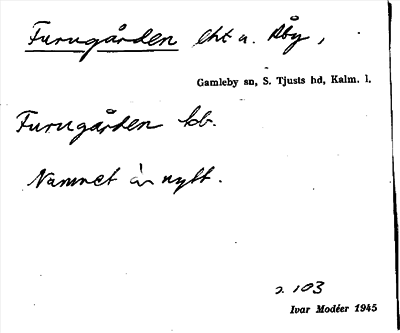 Furugården lht u. Åby,
Gamleby sn, S. Tjusts hd, Kalm. l.
Furugården kb.
Namnet är nytt.
s. 103
Ivar Modéer 1945